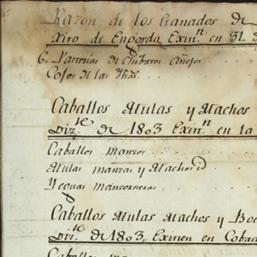 Razon de los Ganados de
Xiro de Engorda Exinⁿ en 31. D
6. Partidas de Chibatos Añejos
Caballos Mulas y Machos
Dizᵉ de 1803 Exinⁿ en la
Caballos Mansos
Mulas mansas y Machos id
Yeguas mancornas
Caballos Mulas Machos y Bo
Dizᵉ de 1803, Exinen en Cobad
Caballos